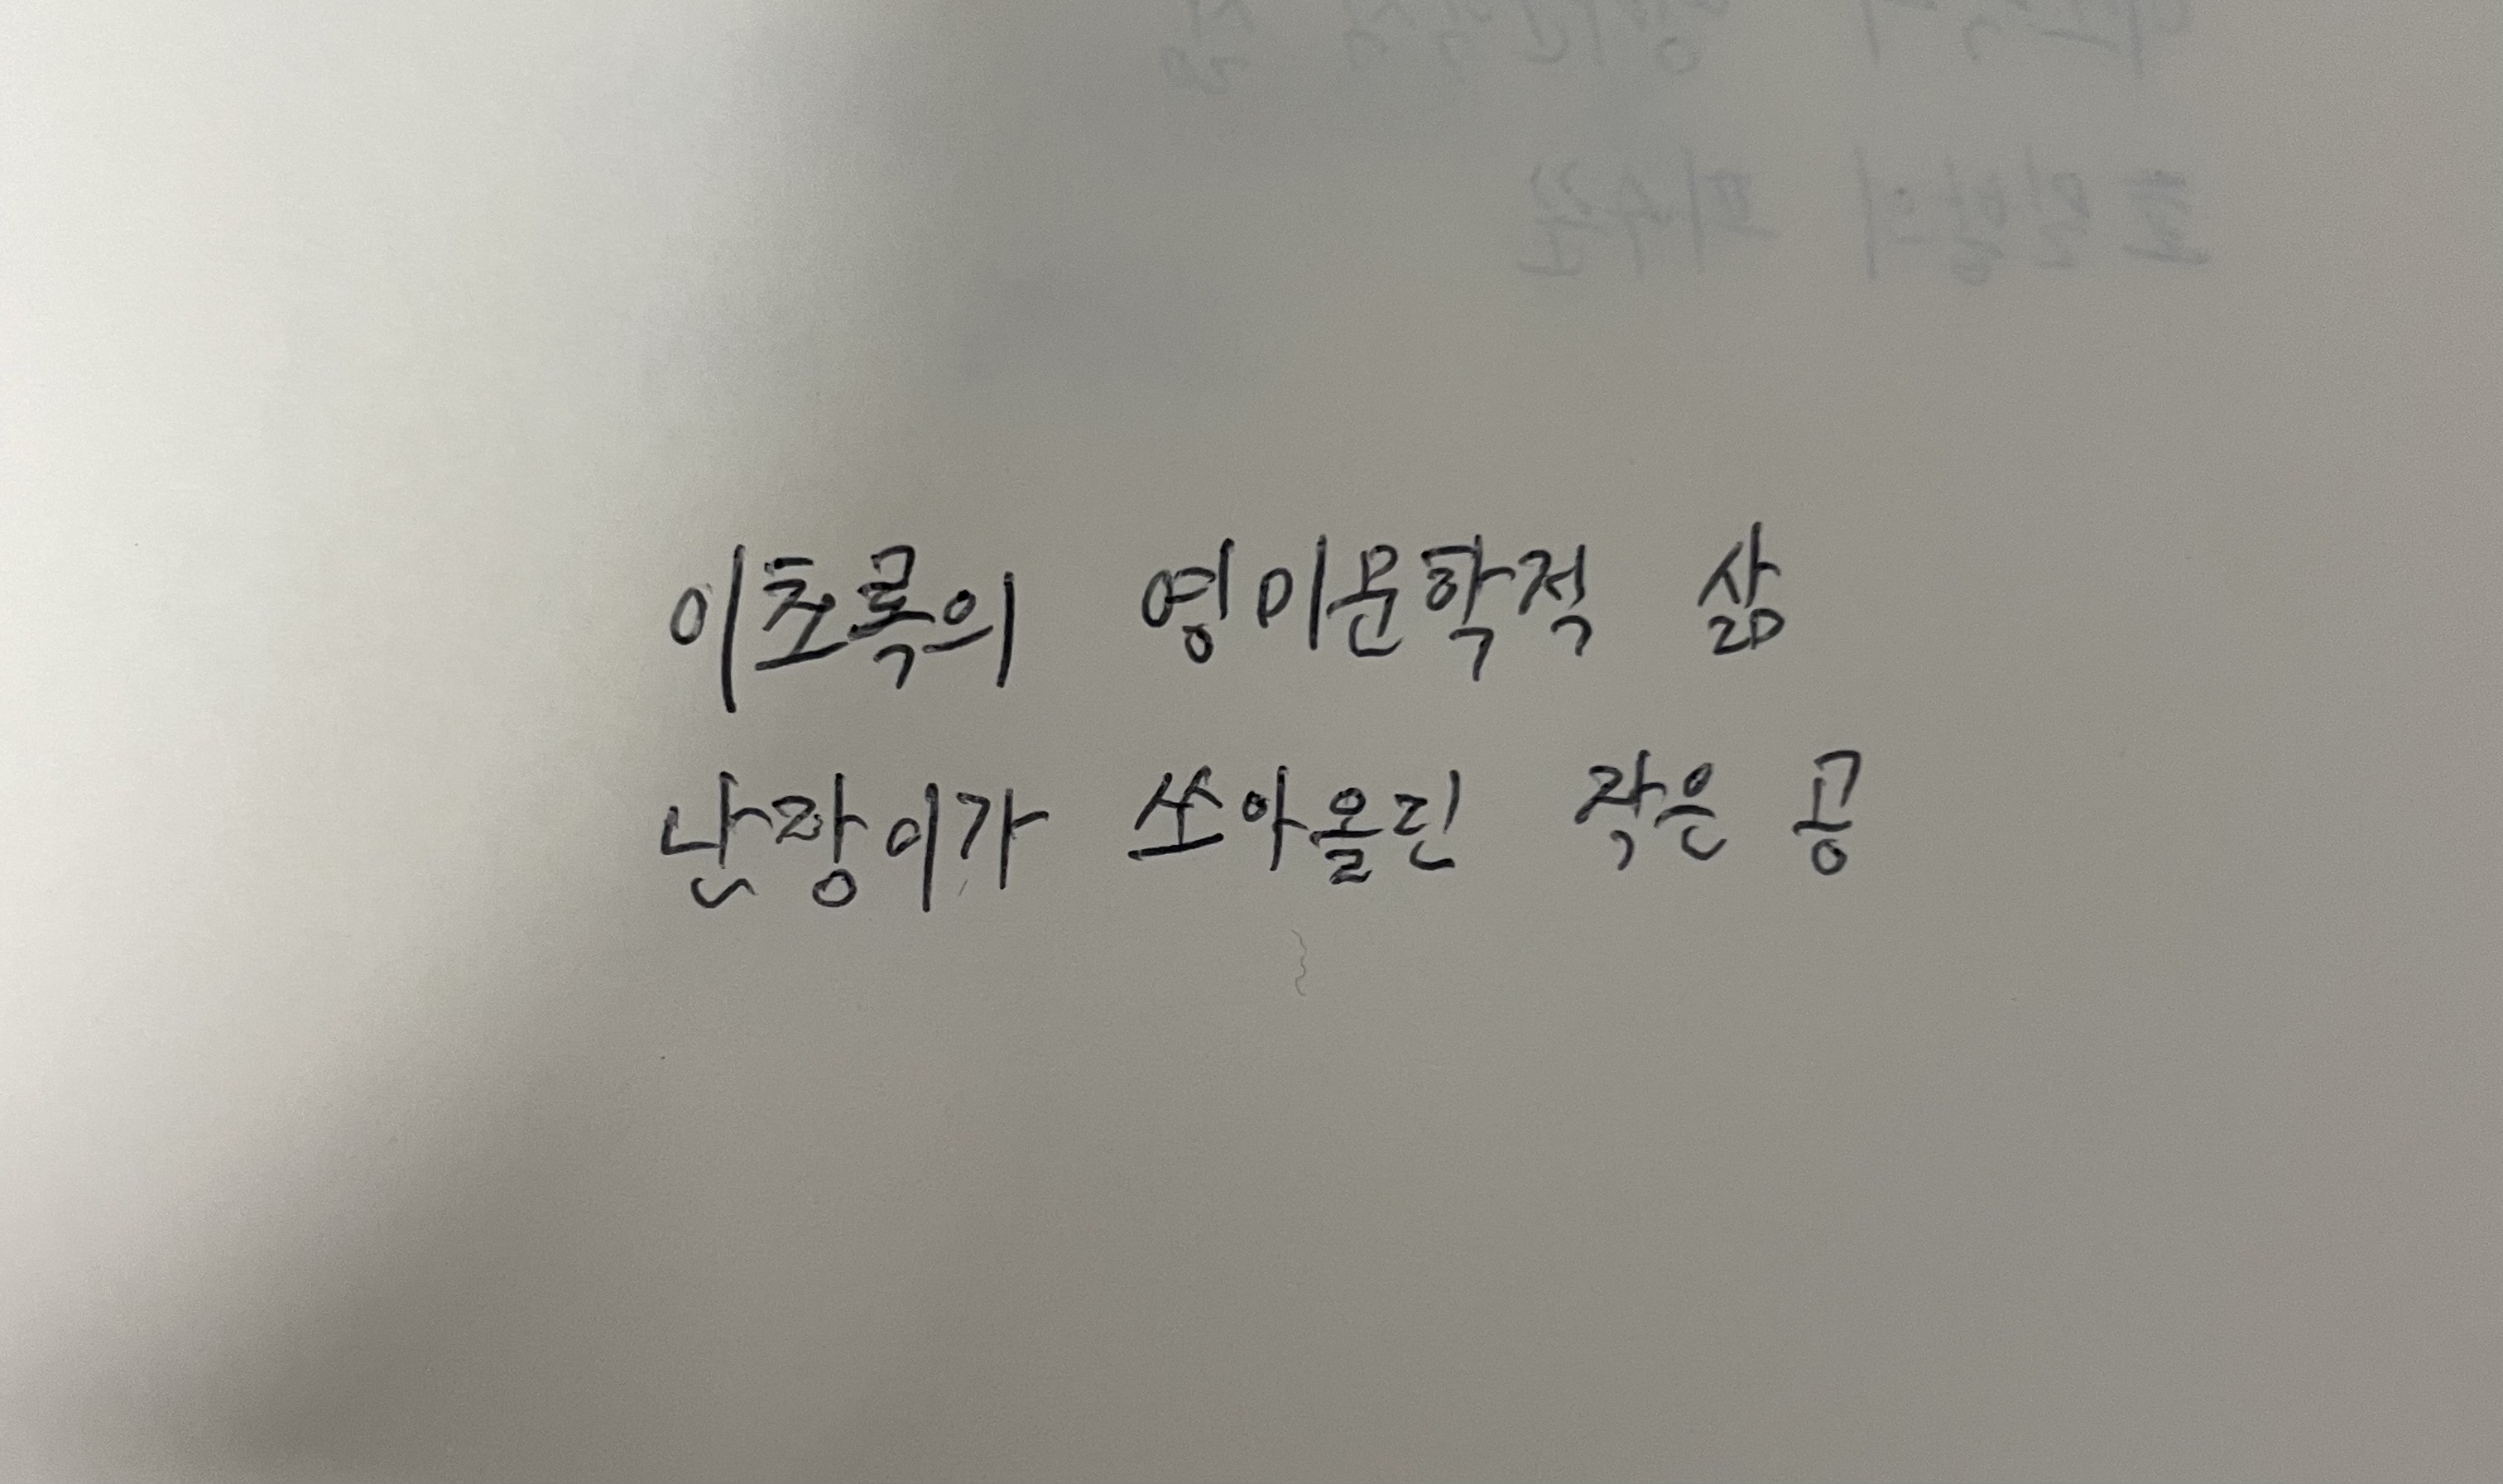 이초록의 영미문학적 삶
난장이가 쏘아올린 작은 공